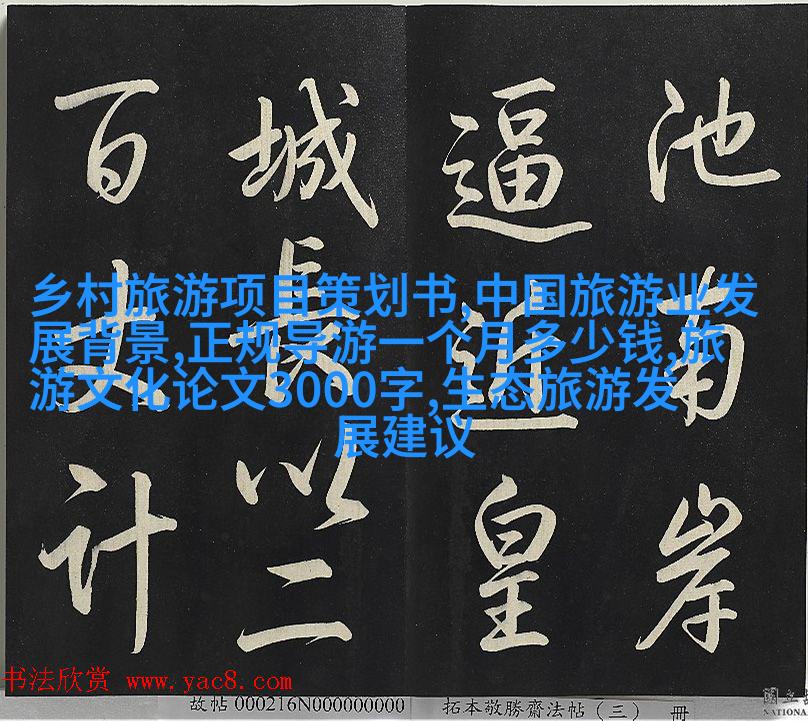 池南岸
逼近皇
城長以二
百丈計
乡村旅游项目策划书,中国旅游业发
展背景,正规导游一个月多少钱,旅
游文化论文3000字,生态旅游发
展建议
书法欣赏 www.yac8.com
故帖 000216N000000000 拓本敬勝齋法帖（三） 冊
國立
NATIONA